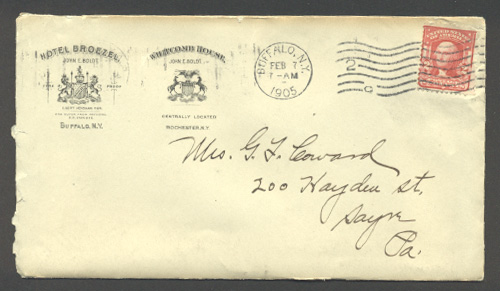 HOTEL BROEZEL
JOHN E. BOLDT
FIRE PROOF
BUFFALO, N.Y.
WHITCOMB HOUSE.
JOHN E. BOLDT
CENTRALLY LOCATED
ROCHESTER, N.Y.
BUFFALO, N.Y.
FEB 7
7-AM
1905
2
Mrs. G. F. Coward
200 Hayden st.
Sayre
Pa.